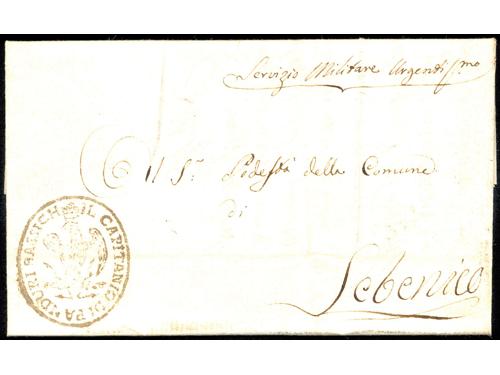 Servizio Militare Urgentissmo
Il Sr. Podestà della Comune
di
Sebenico
IL CAPITANIO DI PANDURI